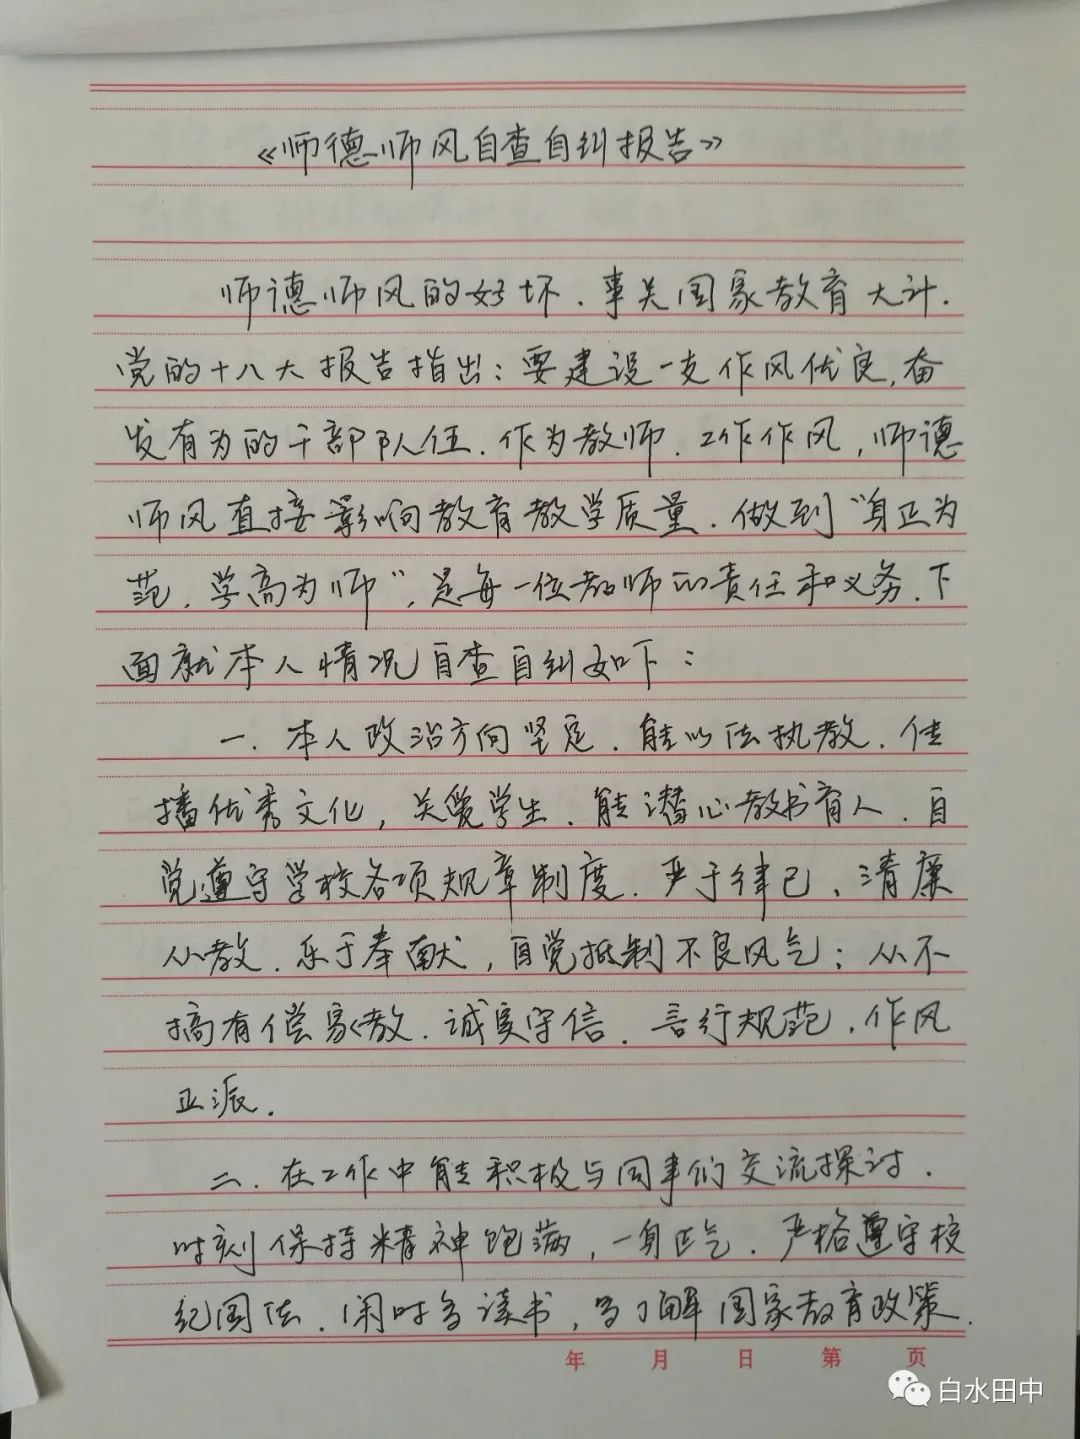 《师德师风自查自纠报告》
师德师风的好坏.事关国家教育大计.
党的十八大报告指出：要建设一支作风优良,奋
发有为的干部队伍.作为教师.工作作风,师德
师风直接影响教育教学质量.做到“身正为
范.学高为师”,是每一位教师的责任和义务.下
面就本人情况自查自纠如下：
一.本人政治方向坚定.能以法执教.传
播优秀文化,关爱学生.能潜心教书育人.自
觉遵守学校各项规章制度.严于律己、清廉
从教.乐于奉献,自觉抵制不良风气；从不
搞有偿家教.诚实守信.言行规范.作风
正派.
二.在工作中能积极与同事们交流探讨.
时刻保持精神饱满,一身正气.严格遵守校
纪国法.闲时多读书,多了解国家教育政策.
年 月 日 第 页
白水田中